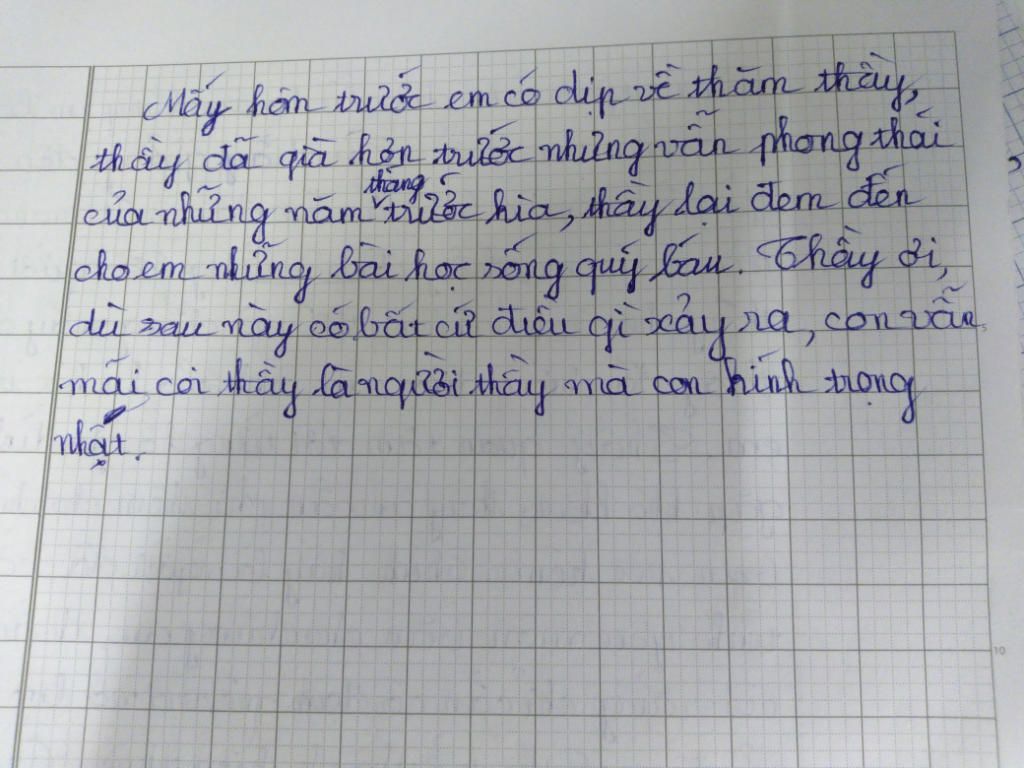 Mấy hôm trước em có dịp về thăm thầy,
thầy đã già hơn trước nhưng vẫn phong thái
của những năm tháng trước kia, thầy lại đem đến
cho em những bài học sống quý báu. Thầy ơi,
dù sau này có bất cứ điều gì xảy ra, con vẫn
mãi coi thầy là người thầy mà con kính trọng
nhất.
10